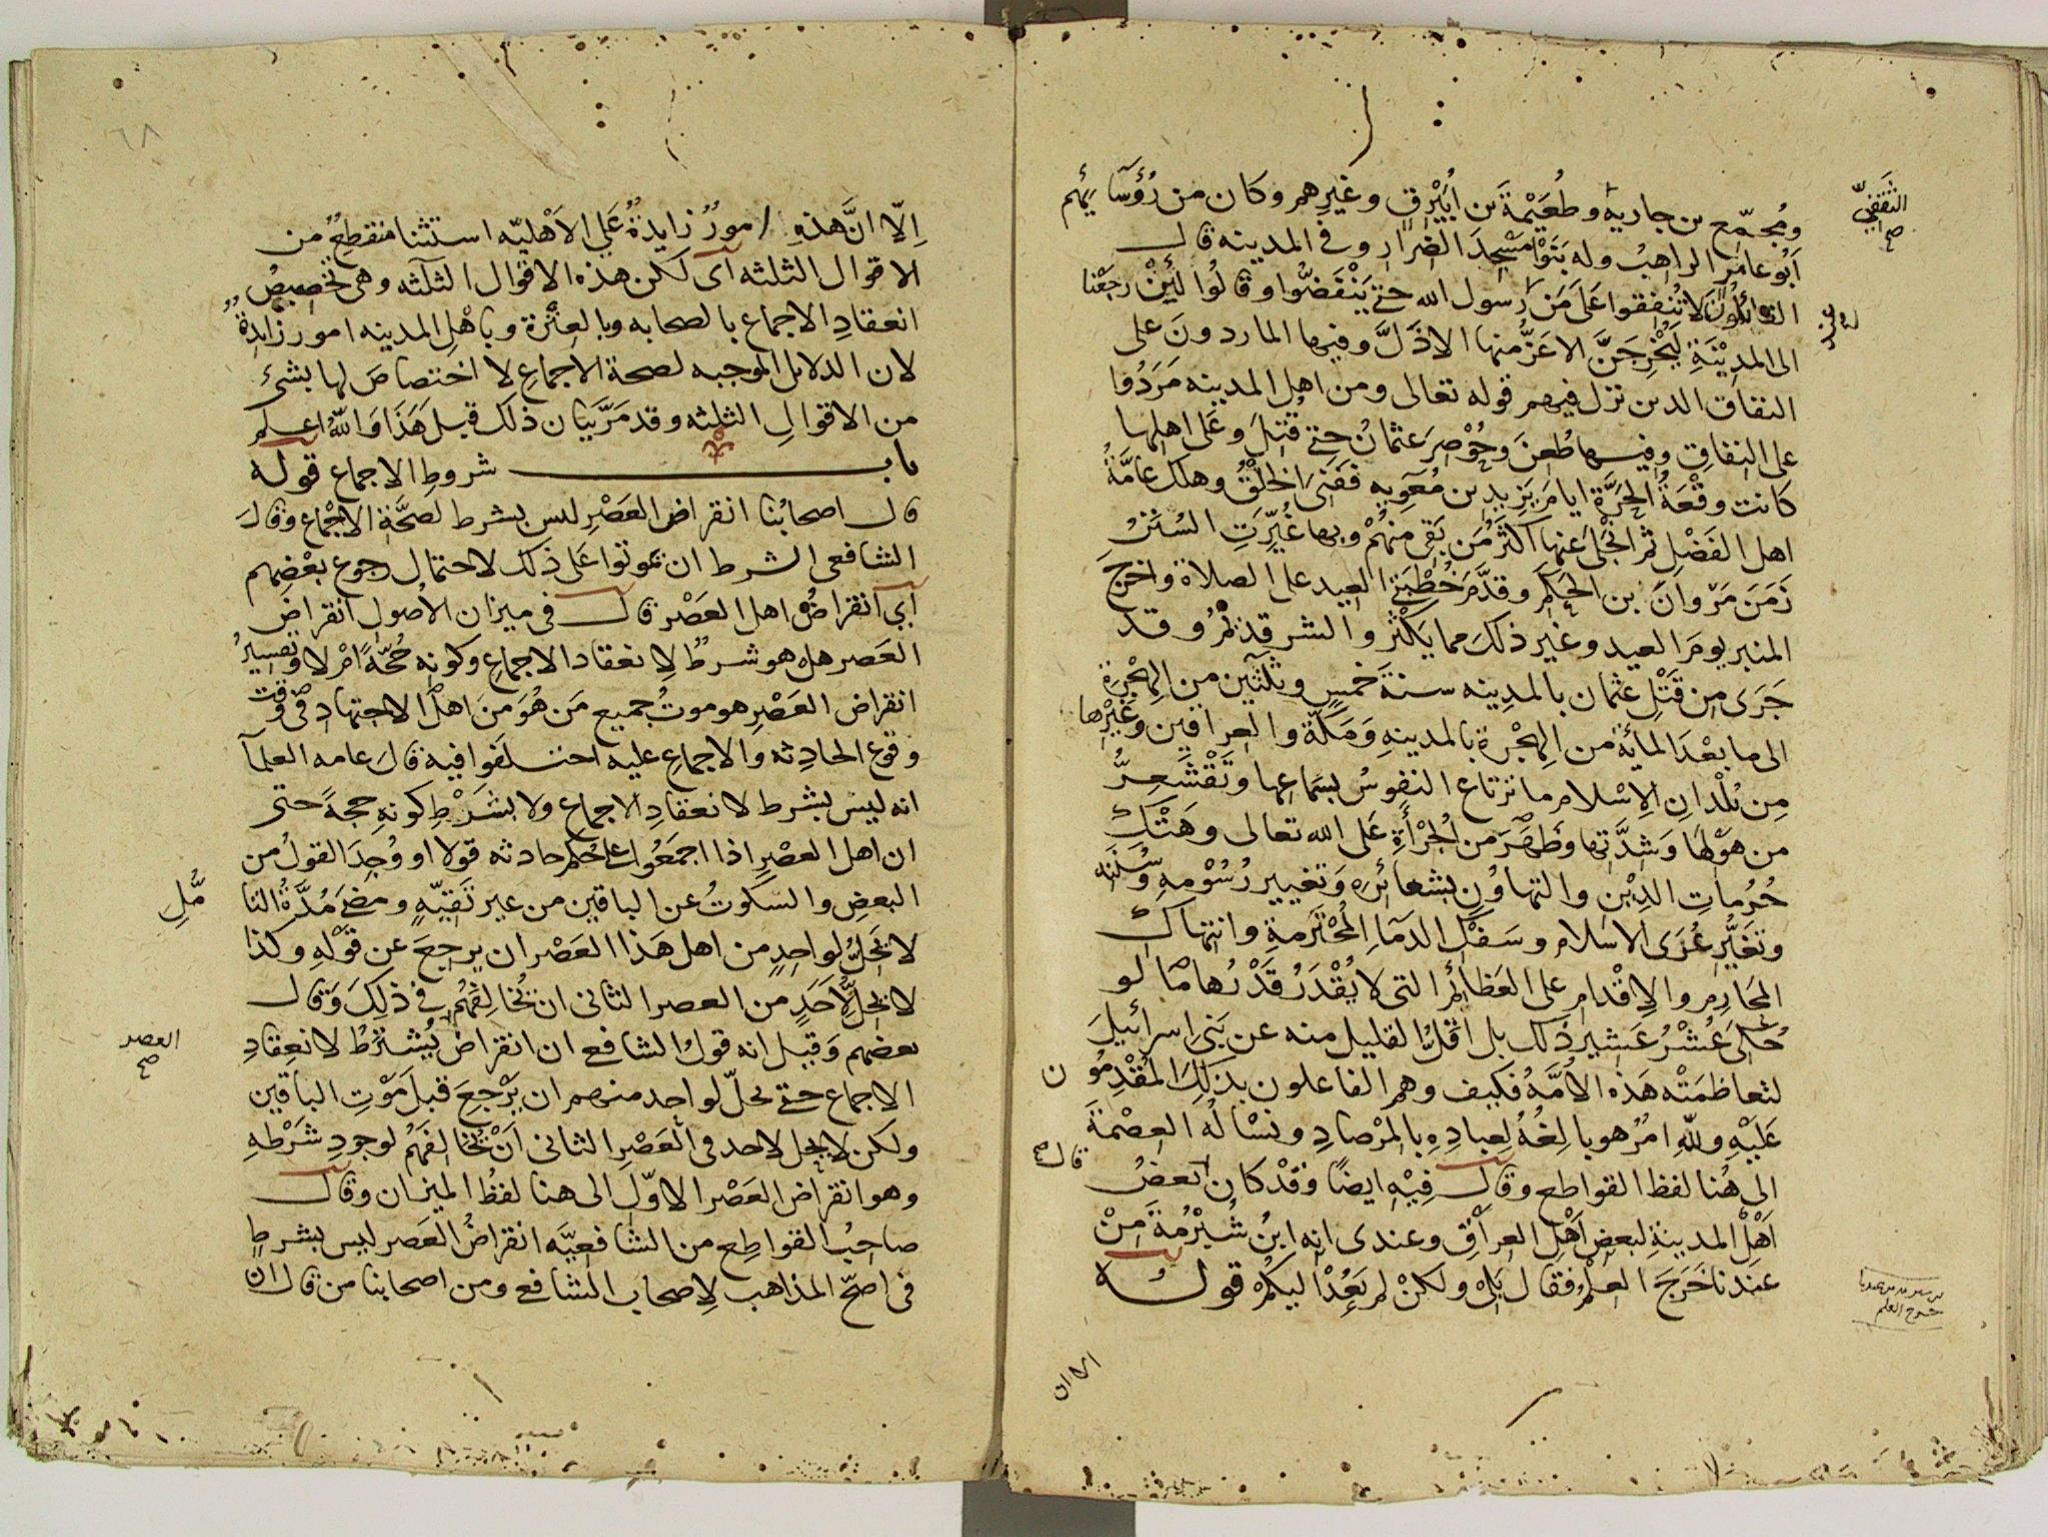 ومُجمّع بن جارية وطُعَيْمةَ بن أُبَيْرِق وغيرهم وكان من رُؤَسَآئِهم
الثقفيّ صح
أبو عامر الراهبُ وله بَنَوْا مسْجِدَ الضرار وفي المدينه قال
القائلون لا تُنفِقوا عَلَى مَن عند رسول الله حتى يَنْفَضُّوا وقالُوا لئِنْ رجَعْنا
الى المدِيْنَةِ لَيُخْرِجَنَّ الاعَزُّ منها الاذَلَّ وفيها الماردونَ على
النفاق الدين نزل فيهم قوله تعالى ومن اهل المدينه مَرَدُوا
على النِفاقِ وفيها طُعنَ وحُوْصِرَ عثمانُ حتى قُتِلَ وعَلى اهلها
كانت وقْعَةُ الحَرَّةِ ايامَ يَزِيدِ بن مُعَوِيه ففَنِيَ الخلْقُ وهلك عامَّةُ
اهل الفَضْلِ ثم انْجَلَى عنها اكثَرُ مَن بَقِي منهُمْ وبها غُيِّرَتِ السُنَنُ
زَمَنَ مَرْوانَ بن الحَكَمِ وقدَّمَ خُطْبَتَيِ العيد على الصلاة واخرجَ
المنبر يومَ العيد وغير ذلكَ مما يَكْثُر والشر قديمٌ وقد
جَرَى مِن قَتْلِ عثمان بالمدِينه سنةَ خمسٍ وثلثين مِن الهِجْرَة
الى ما بعْدَ المأيَة من الهِجْرة بالمدينهِ وَمَكّة والعراقَيْن وغَيْرِها
مِن بُلْدانِ الاِسْلام ما ترتاع النفوسُ بسَماعِها وتَقْشَعِرُّ
من هَوْلِها وَشدَّتِها وظَهَرَ من الجُرْأَةِ عَلى الله تعالى وهَتْكِ
حُرُماتِ الدِيْنِ والتهاوُنِ بشعائرِه وَتغيير رُسُوْمِهِ وسُنَنِه
وتغَيُّرِ عُرَى الاسلام وسَفْكِ الدمَاءِ المُحْتَرَمةِ وانتهاك
المحَارِم والاِقْدام على العَظائم التى لا يُقْدَرُ قَدْرُها ما لو
حُكى عُشْرُ عَشيرِ ذلك بل اقلُّ القليل منه عن بَنِي اسرائيلَ
لتعاظمَتْه هَذه الامَّهُ فكيف وهم الفاعلون بذلكَ المُقْدِمُون
عَلَيْهِ وللهِ امرٌ هو بالغُهُ لعِبادِهِ بالمرْصادِ ونسْالُه العصْمةَ
الى هُنا لفظ القواطع وقال فِيْه ايضًا وقدْ كان بعضُ قال صح
اَهْلِ المدينةِ لبعضِ اَهْلِ العراقِ وعندى انه ابنُ شُبْرُمُةَ مِنْ
عندنا خَرَجَ العِلْمُ فقال بَلى ولكنْ لم يَعُدْ اليكُمْ قوله
خرج العلم
الا ان
٦٨
اِلّا انَّ هذهِ امورٌ زايدةٌ عَلي الاَهْليّه استثنا منقطِعٌ من
الاقوال الثلثه اى لكن هذه الاقوال الثلثه وهى تخصِيصُ
انعقادِ الاجماع بالصحابه وبالعِتْرة وباهْلِ المدينه امور زايدةٌ
لان الدلايل الموجبه لصحة الاجماعِ لا اختصاصَ لها بشئ
من الاقوالِ الثلثه وقد مَرّ بَيان ذلك قبل هَذَا وَاللهُ اعلم
باب شروطِ الاجماع قوله
قال اصحابُنا انقراض العَصْرِ ليس بشرط لصحَّة الاجْماع وقالَ
الشافعى الشرط ان يموتوا عَلى ذلك لاحتمال رجوع بعْضِهم
اي انقراضُ اهل العَصْر قال فى ميزان الاُصول انقراض
العَصر هل هو شرطٌ لانعقاد الاجماعِ وكونه حُجّةً امْ لا وتفسيرُ
انقراض العَصْرِ هو موتُ جميع مَن هُوَ مَن اهل الاجتهاد فى وقت
وقوع الحادِثه والاجماعِ عليه اختلَفوا فيه قالَ عامه العلمآ
انه ليس بشرط لانعقادِ الاجماع ولا بشَرْطِ كونهِ حجةً حتى
ان اهل العصْرِ اذا اجمَعُوا على حُكم حادثه قولا او وُجِدَ القولُ من
البعضِ والسكوتُ عن الباقين من غير تَقِيّةٍ ومضى مُدَّةُ التا
مُّلِ
لا يَحِلُّ لواحِدٍ من اهل هَذا العَصْر ان يرجِعَ عن قَوْلِهِ وكذا
لا يحلّ لاَحَدٍ من العصر الثانى ان يُخالِفَهُم فى ذلِكَ وَقال
بعضهم وَقيل انه قولُ الشافعى ان انقراض يُشتَرطُ لانعقادِ
العصر صح
الاجماع حتى يحلّ لواحد منهم ان يَرْجِعَ قبل مَوْتِ الباقين
ولكن لا يحل لاحد فى العَصْرِ الثانى اَنْ يُخَالفَهُم لوجودِ شَرْطِهِ
وهو انقراض العَصْر الاوّلِ الى هنا لفظُ الميزان وقال
صاحبُ القواطِع من الشافعيَّه انقراضُ العَصر ليس بشرطٍ
فى اصحّ المذاهب لاِصحاب الشافعى ومن اصحابنا من قال ان